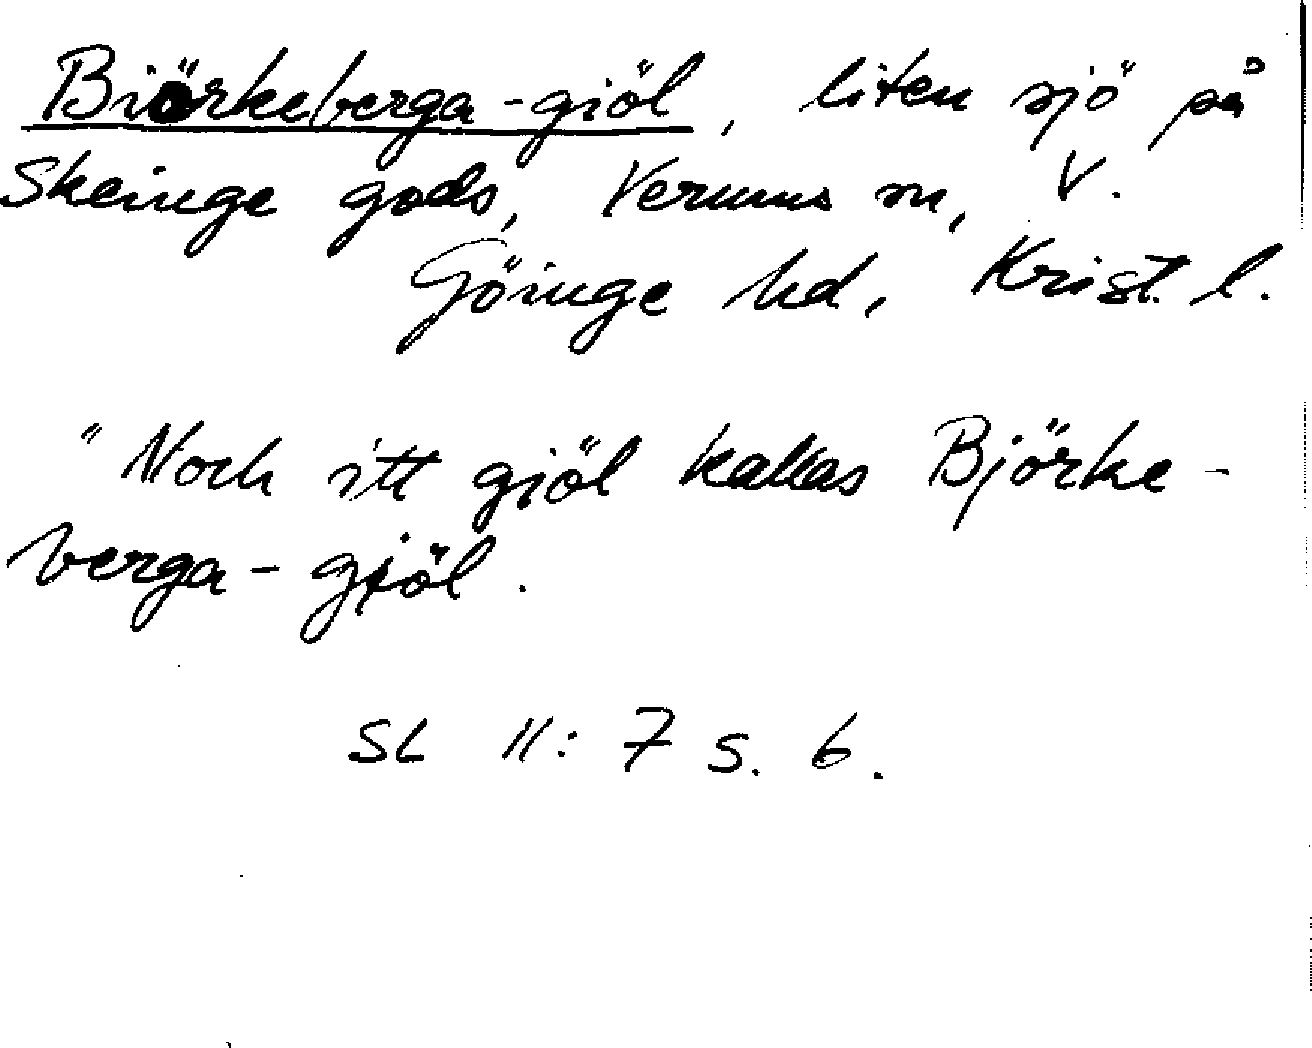 Biörkeberga-giöl, liten sjö på
Skeinge gods, Verums sn, V.
Göinge hd, Krist. l.
"Noch itt giöl kallas Björke-
berga-gjöl.
SL II: 7 s. 6.